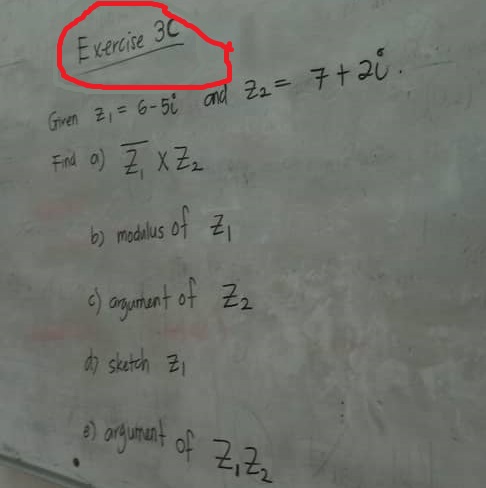 Exercise 3C
Given z₁ = 6-5i and z₂ = 7+2i.
Find a) z̅₁ x z₂
b) modulus of z₁
c) argument of z₂
d) sketch z₁
e) argument of z₁z₂